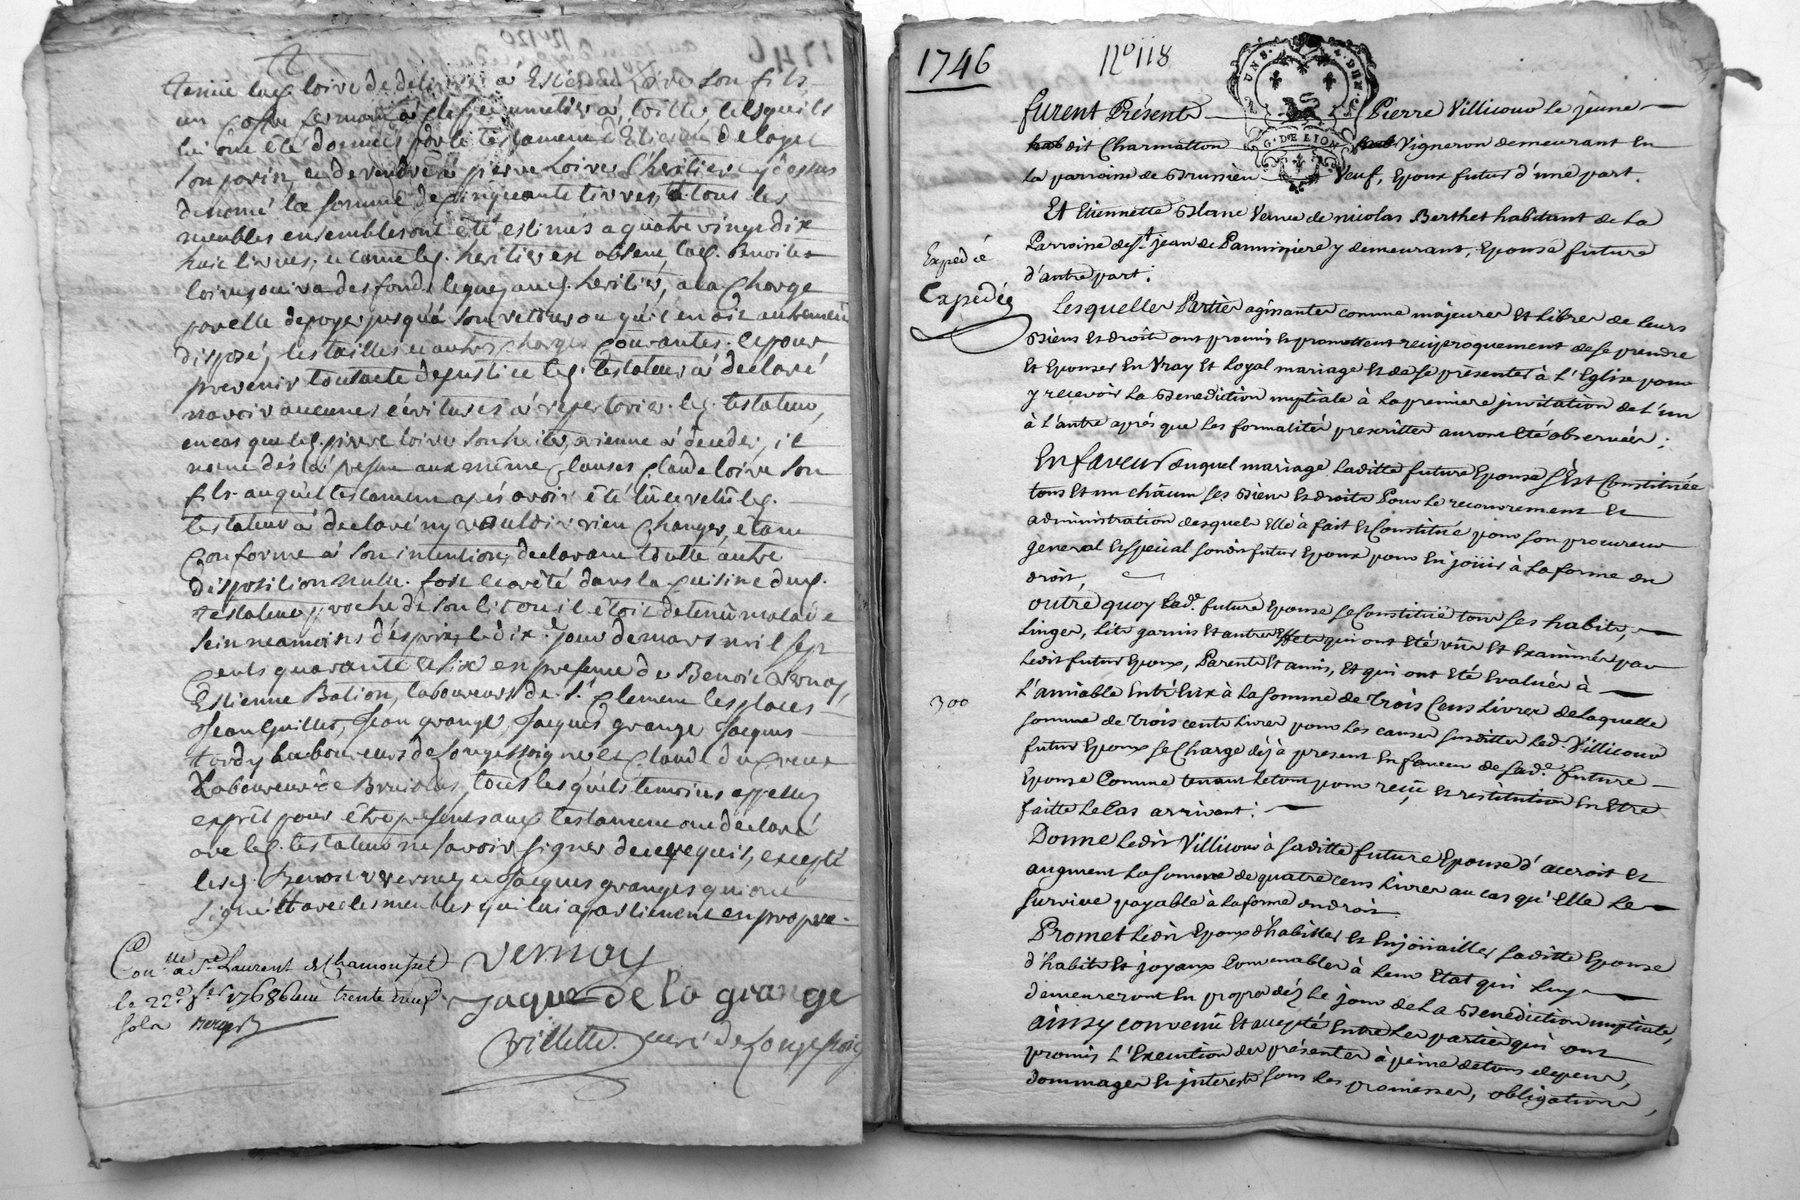 tenue lad. loire de delivrer à Estienne Loire son fils
un coffre fermant à clef, un metier à toille, lesquels
lui ont été donnés par le testament d'Etienne
son parin, et de rendre à pierre Loire heritier cy dessus
denomé la somme de cinquante livres, tous les
meubles ensemble sont été estimés a quatre vingt dix
huit livres, et come led. heritier est absent, lad. benoite
loire jouira des fonds leguez aud. heritier, a la charge
par elle de payer jusqu'à son retour ou qu'il en ait autrement
disposé, les tailles et autres charges courantes. et pour
prevenir tout acte de justice led. testateur à declaré
n'avoir aucunes écritures à repertorier. led. testateur,
en cas que led. pierre loire son heritier, vienne à deceder, il
nome dès à present aux même clauses claude loire son
fils. auquel testament après avoir été lû et relû led.
testateur à declaré n'y vouloir rien changer, etant
conforme à son intention, declarant toutte autre
disposition nulle. fait et arrêté dans la cuisine dud.
testateur proche de son lit ou il étoit detenu malade
sain neamoins d'esprit, le dix.e jour de mars mil sept
cents quarante et six en presence de Benoit Vernay,
Estienne Balion, laboureurs de St. Clement les places
Jean Guillot, Jean grange, Jacques grange Jacques
tordy laboureurs de Longessaigne et Claude du creux
Laboureur de Brulioles, tous lesquels temoins appellez
exprêt pour être presents aud. testament ont declaré
avec led. testateur ne savoir signer de ce requis, excepté
lesd. Benoit vernay et Jacques grange qui ont
signé et avec les meubles qui lui apartienent en propre.
Vernay
Jaque de la grange
Villette curé de Longessaigne
Con.lle à St. Laurent de Chamousset
le 22e 1768 trente neuf
sols
1746
No 118
UNE. DEM.
G. DE LION
Expedié
Expediée
furent Présents Pierre Villicour le jeune
dit Charmatton Vigneron demeurant en
la parroisse de Brussieu Veuf, Epoux futur d'une part.
Et Etiennette Blanc Veuve de nicolas Berthet habitant de la
Parroisse de St. jean de Pannissiere y demeurant, Epouse future
d'autre part:
Lesquelles Parties agissantes comme majeures et libres de leurs
Biens et droits ont promis et promettent reciproquement de se prendre
et Epouser En Vray Et Loyal mariage et de se présenter à L'Eglise pour
y recevoir La Benediction nuptiale à la premiere jnvitation de L'un
à L'autre aprés que Les formalités prescrittes auront Eté observées:
En faveur duquel mariage Laditte future Epouse s'Est Constituée
tous Et un châcun ses Biens et droits Pour Le recouvrement Et
administration desquels Elle à fait Et Constitué pour son procureur
general Et spécial sondit futur Epoux pour En joüir à La forme du
droit,
outré quoy Lade. future Epouse se Constituë tous ses habits,
Linges, Lits garnis Et autres Effets qui ont Eté vûs Et Examinés par
Ledit futur Epoux, Parents Et amis, Et qui ont Eté Evalués à
L'amiable Entr'Eux à La somme de Trois Cens Livres de Laquelle
300
somme de trois cents Livres pour Les causes susdittes Led. Villicour
futur Epoux se Charge déjà présent En faveur de sade. future
Epouse Comme tenant Le tout pour reçu Et restitution En Etre
faitte Le Cas arrivant:
Donne Ledit Villicour à saditte future Epouse d'accroit Et
augment La somme de quatre cens Livres au cas qu'Elle Le
survive payable à La forme du droit
Promet Ledit Epoux d'habiller Et Enjöüailler Laditte Epouse
d'habits Et joyaux Convenables à Leur Etat qui Luy
demeureront En propre déz Le jour de La Benediction nuptiale,
ainsy convenu Et accepté Entre Les parties qui ont
promis L'Execution des présentes à peine de tous depens,
dommages Et jnterests sous Les promesses, obligations,